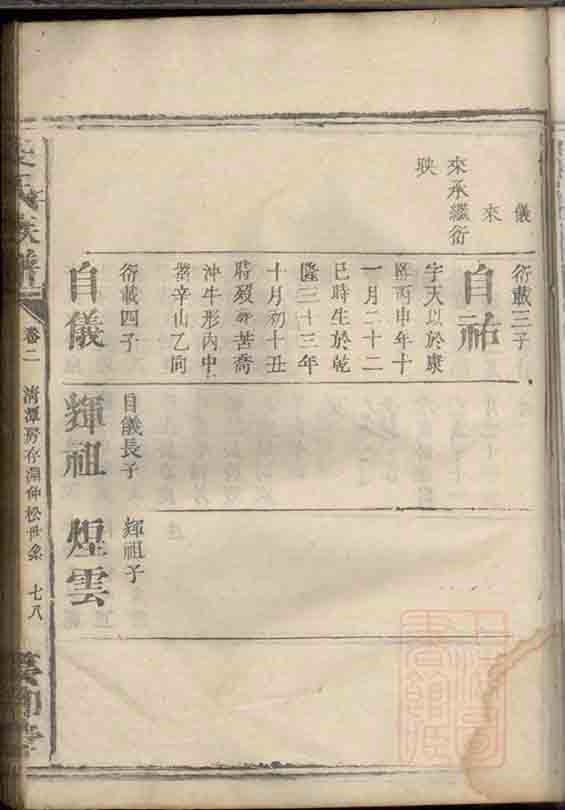 儀
來
來承繼衍
映
衍載三子
自祐
字天以於康
熙丙申年十
一月二十二
巳時生於乾
隆三十三年
十月初十丑
時歿葬苦喬
沖牛形內中
塋辛山乙向
衍載四子
自儀
自儀長子
輝祖
輝祖子
煌雲
氏族譜
卷二
清潭房存淵仲松世系
七八